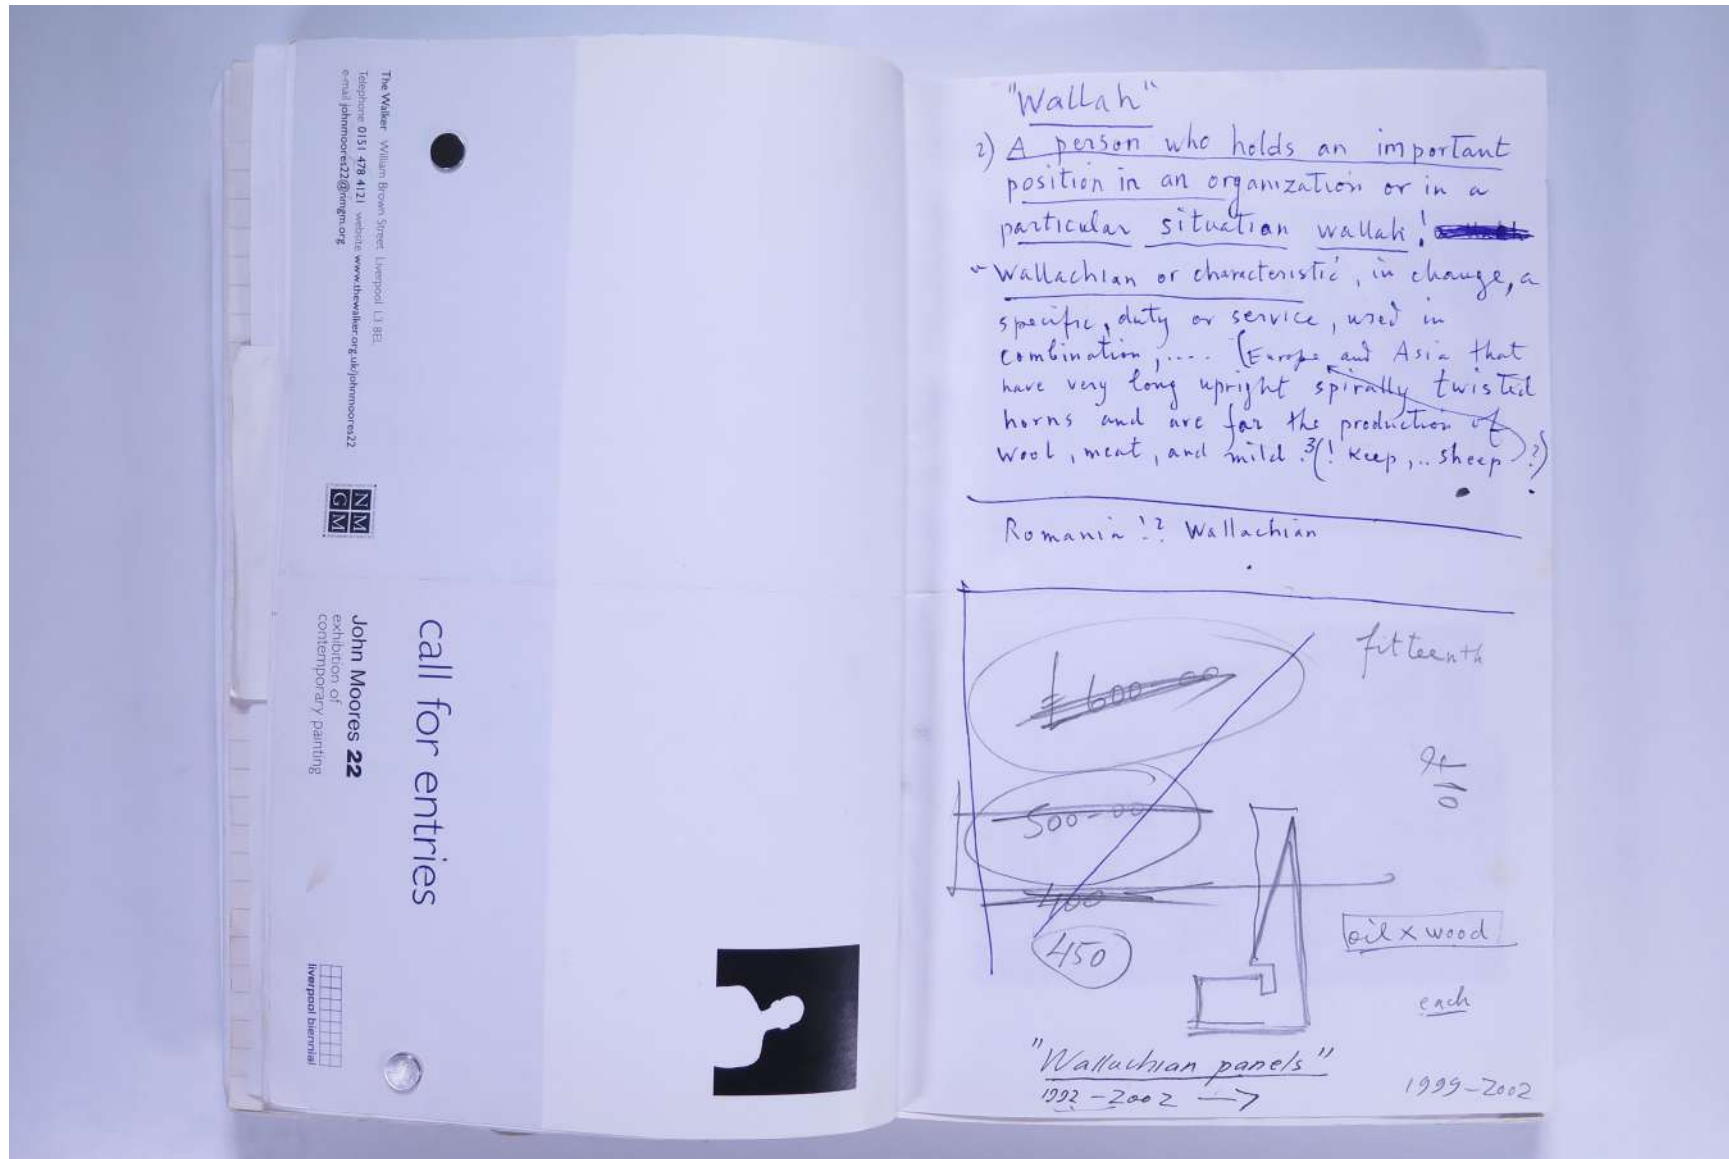 The Walker William Brown Street Liverpool L3 8EL
Telephone 0151 478 4121 website www.thewalker.org.uk/johnmoores22
e-mail johnmoores22@nmgm.org
NM
GM
call for entries
John Moores 22
exhibition of
contemporary painting
liverpool biennial
"Wallah"
2) A person who holds an important
position in an organization or in a
particular situation wallah!
Wallachian or characteristic, in change, a
specific, duty or service, used in
combination, .... (Europe and Asia that
have very long upright spirally twisted
horns and are for the production of
wool, meat, and mild ?3(! Keep, .. sheep ?)
Romania !? Wallachian
fifteenth
£ 600-00
500-00
400
450
10
oil x wood
each
"Wallachian panels"
1992-2002 →
1999-2002